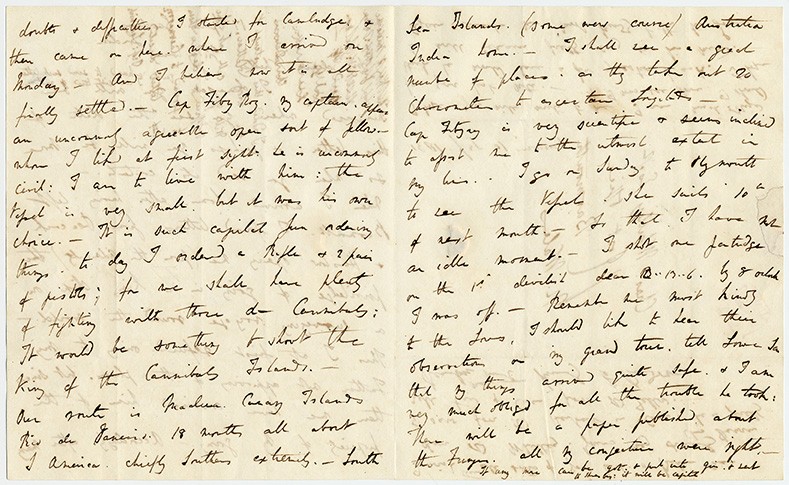 doubts & difficulties I started for Cambridge, &
then came on here. where I arrived on
Monday — And I believe now it is all
finally settled. — Cap. Fitz Roy. my captain. appears
an uncommonly agreeable open sort of fellow. —
whom I liked at first sight. he is uncommonly
civil: I am to live with him: the
Vessel is very small. but it was his own
choice. — It is such capital fun ordering
things. to day I ordered a Rifle & 2 pair
of pistols; for we shall have plenty
of fighting with those d— Cannibals:
It would be something to shoot the
King of the Cannibals Islands. —
Our route is Madeira. Canary Islands
Rio de Janeiro. 18 months all about
S America. chiefly Southern extremity. — South
Sea Islands. (some new course) Australia
India home. — I shall see a great
number of places: as they take out 20
Chronometers to ascertain Longitudes —
Cap Fitzroy is very scientific & seems inclined
to assist me to the utmost extent in
my line. I go on Sunday to Plymouth
to see the Vessel. she sails 10th
of next month — So that I have not
an idle moment. — I shot one partridge
on the 1st devilish dear by 8 oclock
I was off. — Remember me most kindly
to the Lowes, I should like to hear their
observations on my grand tour. tell Lowe Sen
that my things arrived quite safe. & I am
very much obliged for all the trouble he took:
There will be a paper published about
the all my conjectures were right. —
If any more can be got. & put into gin. & sent
it will be capital